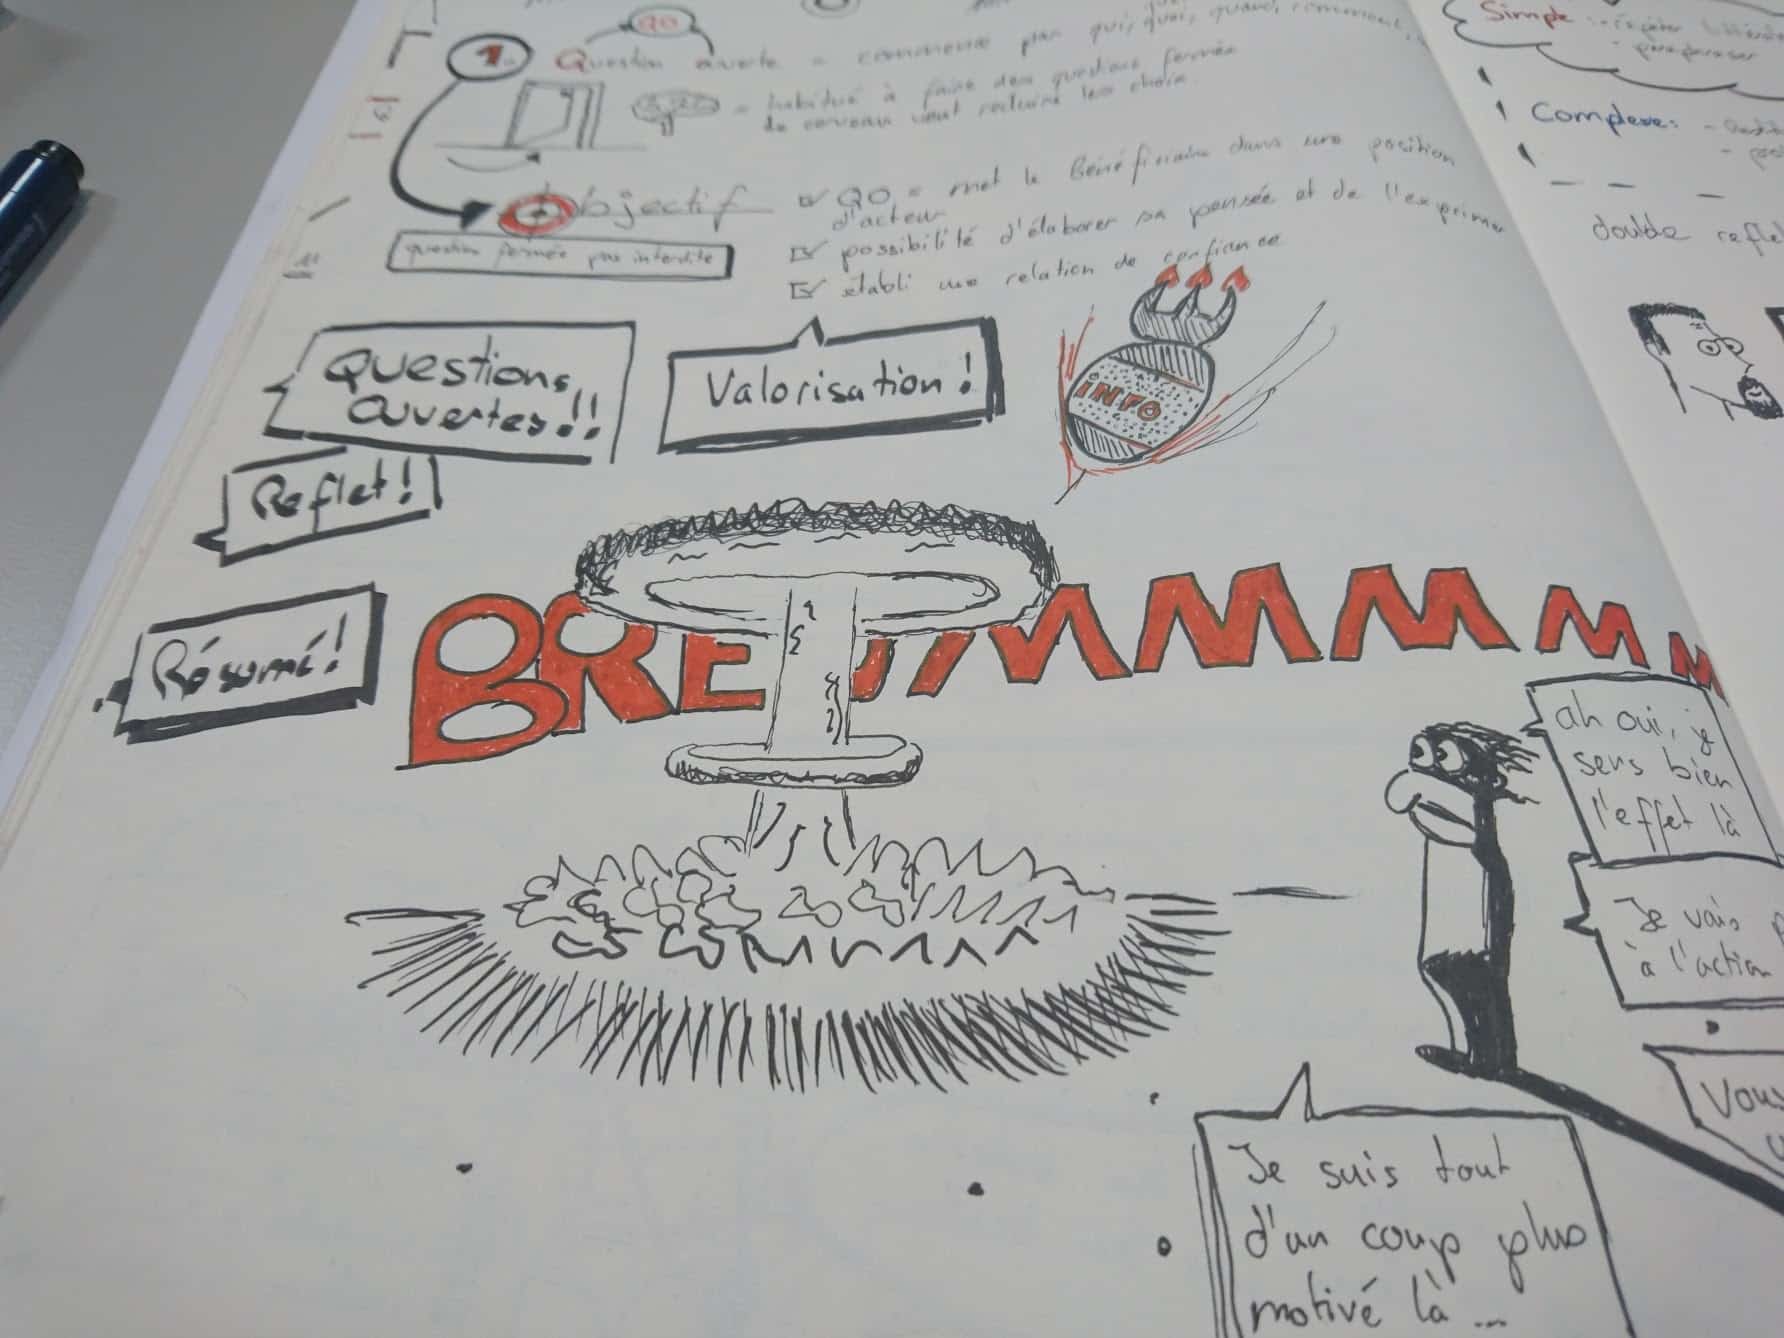 QO
1. Question ouverte = commence par qui, quoi, quand, comment,
= habitué à faire des questions fermée
le cerveau veut réduire les choix.
Objectif
question fermée pas interdite
QO = met le Bénéficiaire dans une position
d'acteur
possibilité d'élaborer sa pensée et de l'exprimer
établi une relation de confiance
Questions
ouvertes!!
Valorisation!
INFO
Reflet!
Résumé!
ah oui, je
sens bien
l'effet là
Je vais
à l'action
Vous
Je suis tout
d'un coup plus
motivé là...
Simple
paraphraser
Complexe:
double reflet